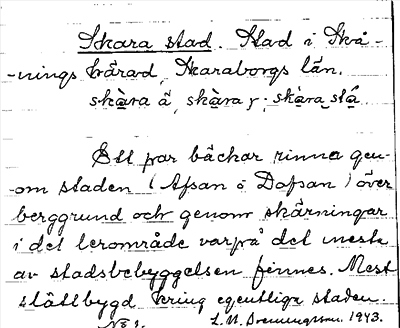 Skara stad. Stad i Skå-
-nings härad, Skaraborgs län.
skàra å, skàra y; skàra stá
Ett par bäckar rinna gen-
-om staden (Afsan o Dofsan) över
berggrund och genom skärningar
i det lerområde varpå det mesta
av stadsbebyggelsen finnes. Mest
slättbygd kring egentliga staden.
No 1. L.M. 1943.